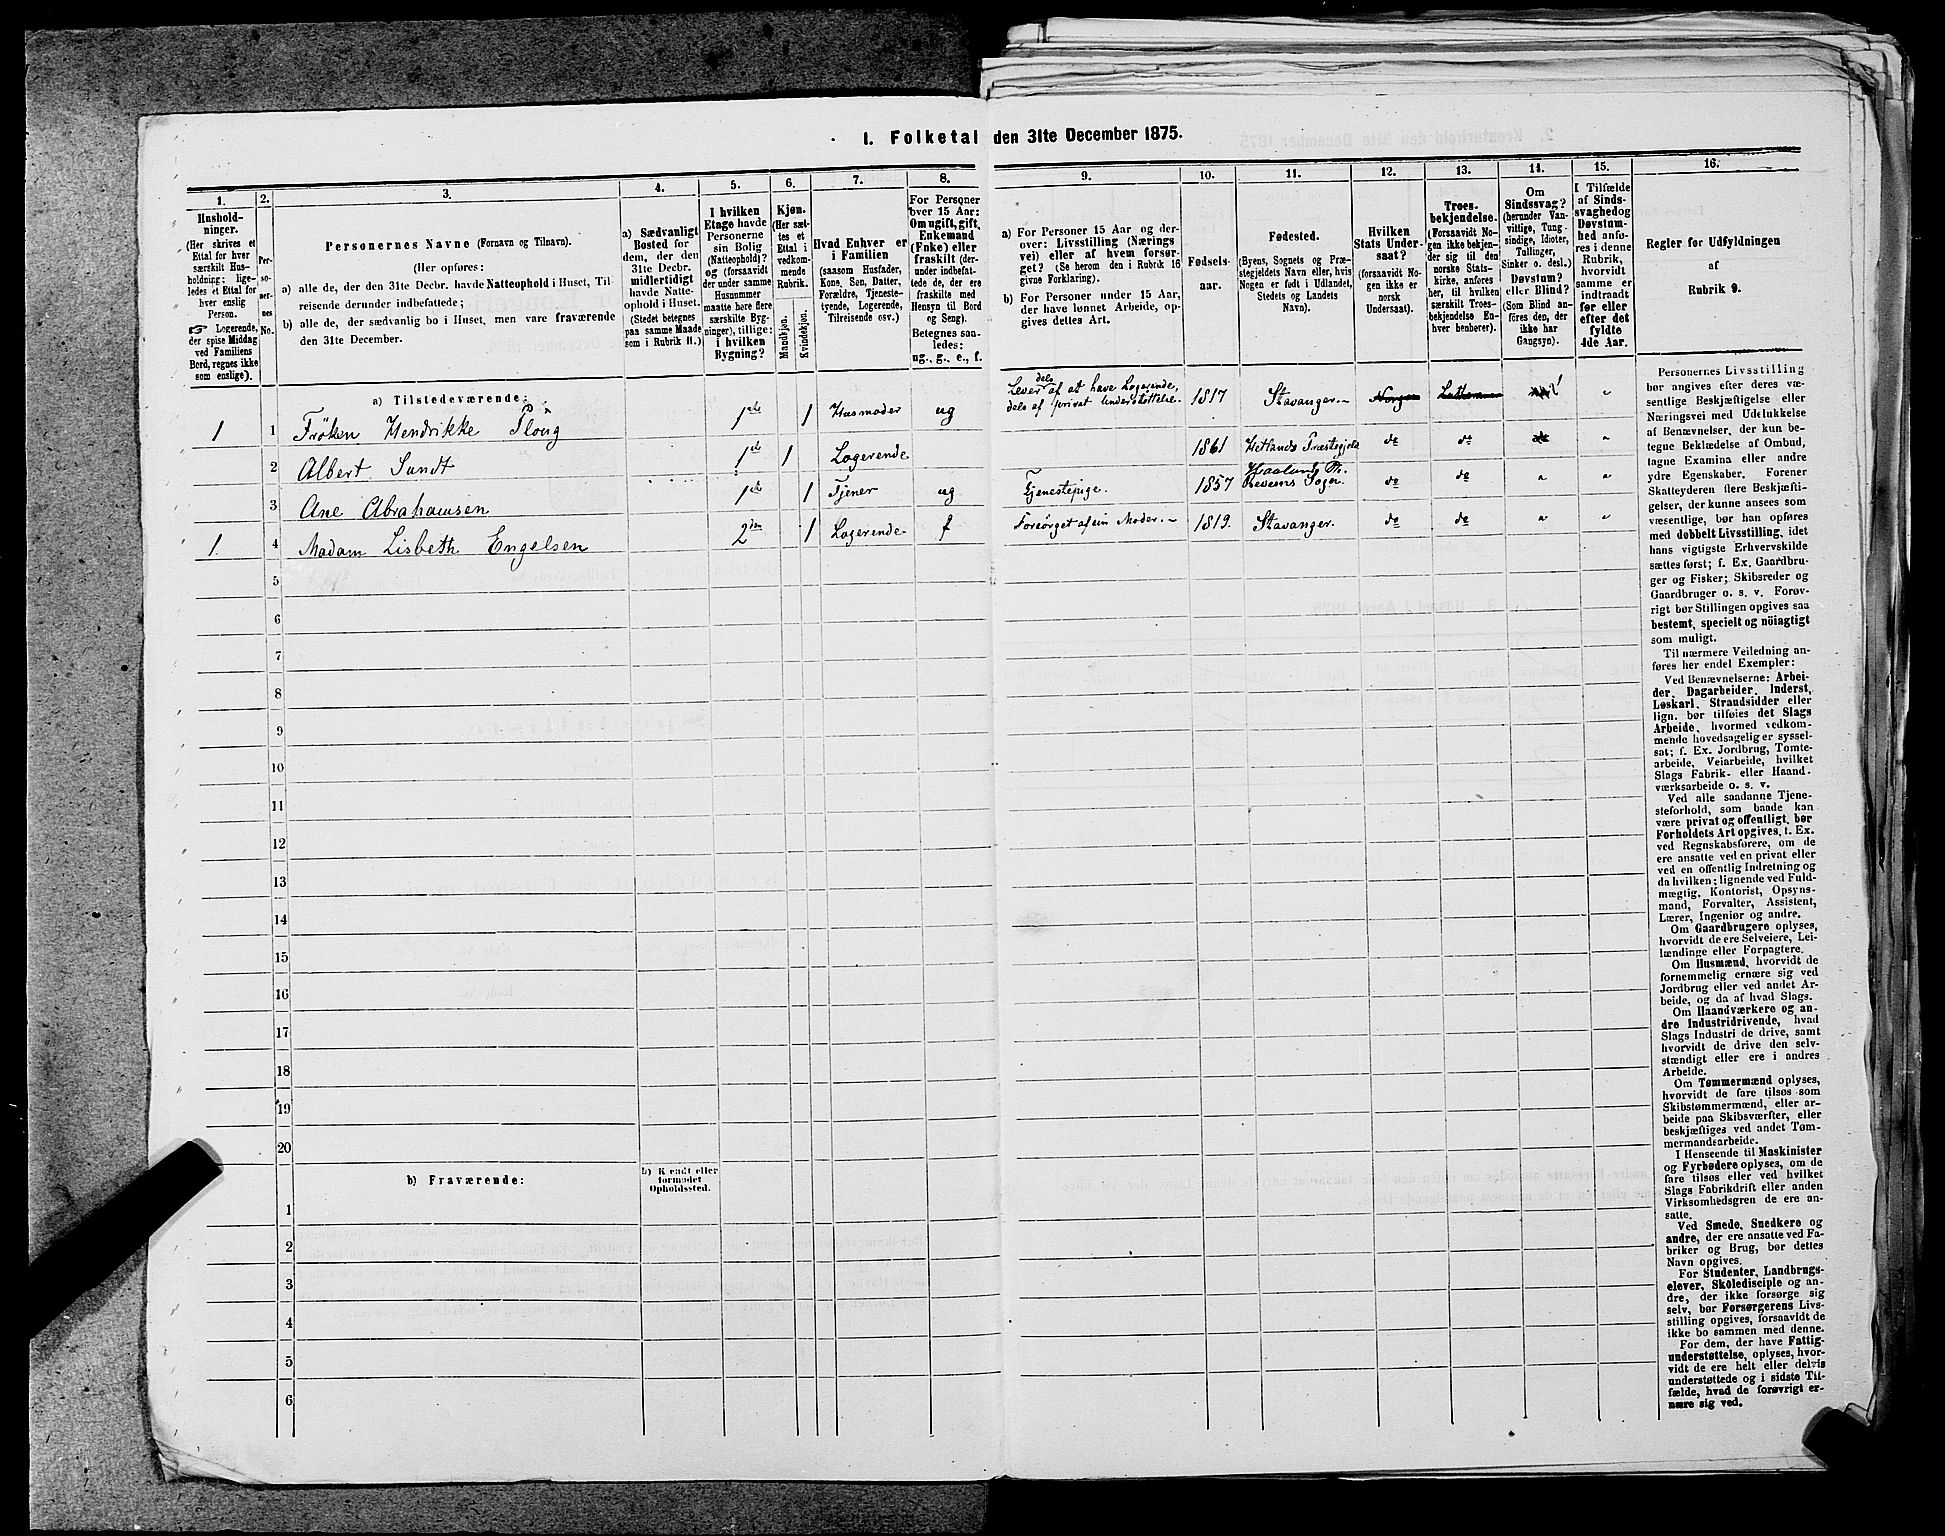 1. Folketal den 31te December 1875.
1.
2.
3.
4.
5.
6.
7.
8.
9.
10.
11.
12.
13.
14.
15.
16.
Hushold-
ninger.
(Her skrives et
Ettal for hver
særskilt Hus-
holdning; lige-
ledes et Ettal for
hver enslig
Person.
☞ Logerende,
der spise Middag
ved Familiens
Bord, regnes ikke
som enslige).
Per-
so-
ner-
nes
No.
Personernes Navne (Fornavn og Tilnavn).
(Her opføres:
a) alle de, der den 31te Decbr. havde Natteophold i Huset, Til-
reisende derunder indbefattede;
b) alle de, der sædvanlig bo i Huset, men vare fraværende
den 31te December.
a) Sædvanligt
Bosted for
dem, der den
31te Decbr.
midlertidigt
havde Natte-
ophold i Huset.
(Stedet betegnes
paa samme Maade
som i Rubrik 11.)
I hvilken
Etage havde
Personerne
sin Bolig
(Natteophold)?
og (forsaavidt
der under samme
Husnummer
maatte høre flere
særskilte Byg-
ninger), tillige:
i hvilken
Bygning?
Kjøn.
(Her sæt-
tes et
Ettal i
vedkom-
mende
Rubrik.
Mandkjøn.
Kvindekjøn.
Hvad Enhver er
i Familien
(saasom Husfader,
Kone, Søn, Datter,
Forældre, Tjeneste-
tyende, Logerende,
Tilreisende osv.)
For Personer
over 15 Aar:
Om ugift, gift,
Enkemand
(Enke) eller
fraskilt (der-
under indbefat-
tede de, der ere
fraskilte med
Hensyn til Bord
og Seng).
Betegnes saa-
ledes:
ug., g., e., f.
a) For Personer 15 Aar og der-
over: Livsstilling (Nærings
vei) eller af hvem forsør-
get? (Se herom den i Rubrik 16
givne Forklaring).
b) For Personer under 15 Aar,
der have lønnet Arbeide, op-
gives dettes Art.
Fødsels-
aar.
Fødested.
(Byens, Sognets og Præ-
stegjeldets Navn eller, hvis
Nogen er født i Udlandet,
Stedets og Landets
Navn).
Hvilken
Stats Under-
saat?
(forsaavidt No-
gen ikke er
norsk
Undersaat).
Troes-
bekjendelse.
(Forsaavidt No-
gen ikke bekjen-
der sig til den
norske Stats-
kirke, anføres
her, til hvilken
særskilt Troes-
bekjendelse En-
hver henhører).
Om
Sindssvag?
(herunder Van-
vittige, Tung-
sindige, Idioter,
Tullinger,
Sinker o. desl.)
Døvstum?
eller Blind?
(Som Blind an-
føres den, der
ikke har
Gangsyn).
I Tilfælde
af Sinds-
svaghed og
Døvstum-
hed anfø-
res i denne
Rubrik,
hvorvidt
samme er
indtraadt
før eller
efter det
fyldte
4de Aar.
Regler for Udfyldningen
af
Rubrik 9.
a) Tilstedeværende:
1 1 Frøken Hendrikke Ploug 1ste 1 Husmoder ug Lever dels af at have Logerende, dels af privat Understøttelse. 1817 Stavanger. Norge Luthersk "
2 Albert Sundt 1ste 1 Logerende 1861 Hetlands Præstegjeld do do "
3 Ane Abrahamsen 1ste 1 Tjener ug Tjenestepige. 1857 Haaland Pr. Revems Sogn do do " "
1 4 Madam Lisbeth Engelsen 2den 1 Logerende f Forsørget af sin Moder. 1819. Stavanger. do do " "
5
6
7
8
9
10
11
12
13
14
15
16
17
18
19
20
b) Fraværende:
b) Kjendt eller
formodet
Opholdssted.
1
2
3
4
5
6
Personernes Livsstilling
bør angives efter deres væ-
sentlige Beskjæftigelse eller
Næringsvei med Udelukkelse
af Benævnelser, der kun be-
tegne Beklædelse af Ombud,
tagne Examina eller andre
ydre Egenskaber. Forener
Skatteyderen flere Beskjæfti-
gelser, der kunne ansees som
væsentlige, bør han opføres
med dobbelt Livsstilling, idet
hans vigtigste Erhvervskilde
sættes først; f. Ex. Gaardbru-
ger og Fisker; Skibsreder og
Gaardbruger o. s. v. Forøv-
rigt bør Stillingen opgives saa
bestemt, specielt og nöiagtigt
som muligt.
Til nærmere Veiledning an-
føres her endel Exempler:
Ved Benævnelserne: Arbei-
der, Dagarbeider, Inderst,
Løskarl, Strandsidder eller
lign. bør tilføies det Slags
Arbeide, hvormed vedkom-
mende hovedsagelig er syssel-
sat; f. Ex. Jordbrug, Tomte-
arbeide, Veiarbeide, hvilket
Slags Fabrik- eller Haand-
værksarbeide o. s. v.
Ved alle saadanne Tjene-
steforhold, som baade kan
være privat og offentligt, bør
Forholdets Art opgives, t. Ex.
ved Regnskabsførere, om de
ere ansatte ved en privat eller
ved en offentlig Indretning og
da hvilken; lignende ved Fuld-
mægtig, Kontorist, Opsyns-
mand, Forvalter, Assistent,
Lærer, Ingeniør og andre.
Om Gaardbrugere oplyses,
hvorvidt de ere Selveiere, Lei-
lændinge eller Forpagtere.
Om Husmænd, hvorvidt de
fornemmelig ernære sig ved
Jordbrug eller ved andet Ar-
beide, og da af hvad Slags.
Om Haandværkere og an-
dre Industridrivende, hvad
Slags Industri de drive, samt
hvorvidt de drive den selv-
stændigt eller ere i andres
Arbeide.
Om Tømmermænd oplyses,
hvorvidt de fare tilsøs som
Skibstømmermænd, eller ar-
beide paa Skibsværfter, eller
beskjæftiges ved andet Tøm-
mermandsarbeide.
I Henseende til Maskinister
og Fyrbødere oplyses, om de
fare tilsøs eller ved hvilket
Slags Fabrikdrift eller anden
Virksomhedsgren de ere an-
satte.
Ved Smede, Snedkere og
andre, der ere ansatte ved Fa-
briker og Brug, bør dettes
Navn opgives.
For Studenter, Landbrugs-
elever, Skoledisciple og an-
dre, der ikke forsørge sig
selv, bør Forsørgerens Livs-
stilling opgives, forsaavidt de
ikke bo sammen med denne.
For dem, der have Fattig-
understøttelse, oplyses, hvor-
vidt de ere helt eller delvis
understøttede og i sidste Til-
fælde, hvad de forøvrigt er-
nære sig ved.